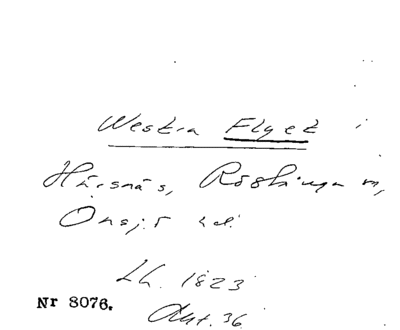 Westra Flyet i
Härsnäs, Röstånga m,
Onsjö hd.
Lh. 1823
Nr 8076.
Akt. 36